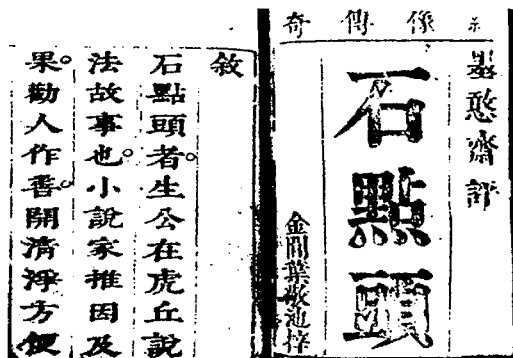 像傳奇
墨憨齋評
石點頭
金閶葉敬池梓
敘
石點頭者。生公在虎丘說
法故事也。小說家推因及
果。勸人作善。開清淨方便